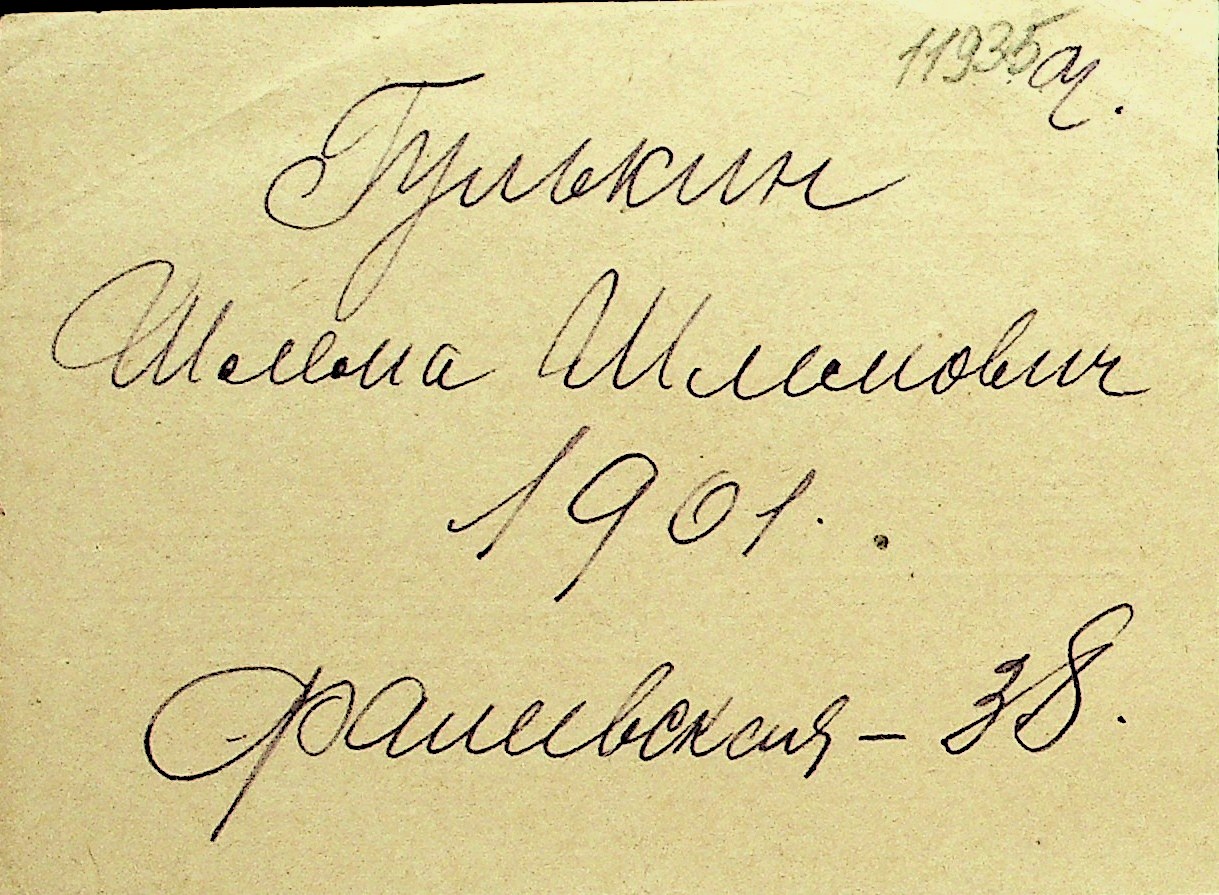 11935 а.
Гулькин
Шлема Шлемович
1901.
Фалеевская – 38.